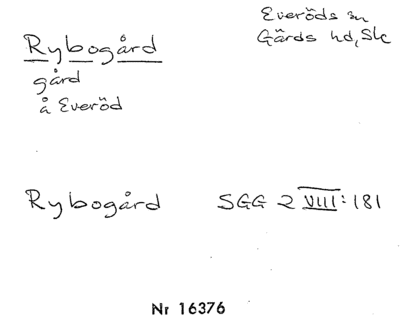 Rybogård
gård
å Everöd
Everöds sn
Gärds hd, Sk
Rybogård SGG 2 VIII:181
Nr 16376